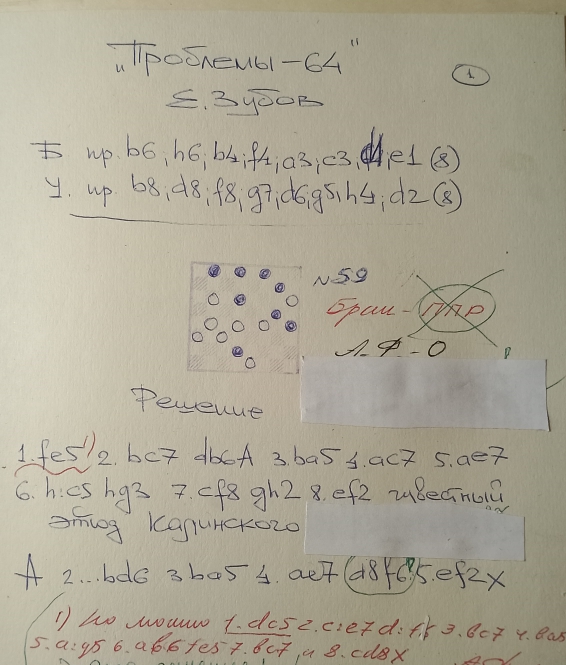 „Проблемы-64"
1
Е. Зубов
Б пр. b6, h6, b4, f4, a3, c3, d4, e1 (8)
Ч. пр. b8, d8, f8, g7, d6, g5, h4, d2 (8)
№59
Брак - ППР
А-Ф-О
Решение
1. fe5 1) 2. bc7 db6A 3. ba5 4. ac7 5. ae7
6. h:c5 hg3 7. cf8 gh2 8. ef2 известный
этюд Калинского
А 2... bd6 3 ba5 4. ae7 d8f6 5. ef2X
1) Но можно 1. dc5 2. c:e7 3. bc7 4. ba5
5. a:g5 6. ab6 fe5 7. bc7, и 8. cd8X